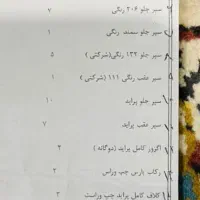 سپر جلو ۲۰۶ رنگی ۷
سپر جلو سمند رنگی ۲
سپر جلو ۱۳۲ رنگی (شرکتی) ۵
سپر عقب رنگی ۱۱۱ (شرکتی) ۱
سپر جلو پراید ۱۰
سپر عقب پراید ۷
اگزوز کامل پراید (دوگانه) ۲
رکاب پارس چپ وراست ۲
گلاف کامل پراید چپ وراست ۳